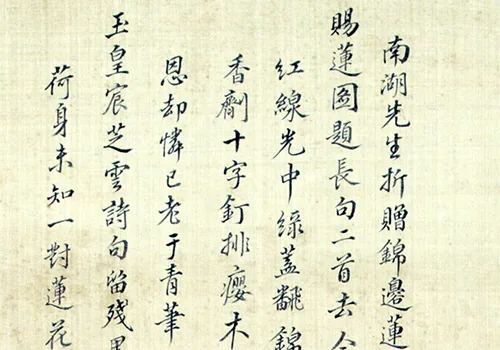 南湖先生折贈錦邊蓮
賜蓮圖題長句二首去
紅線光中綠蓋翻錦
香劑十字釘排癭木
恩却憐已老于青筆
玉皇宸芝雲詩句留殘
荷身未知一對蓮花